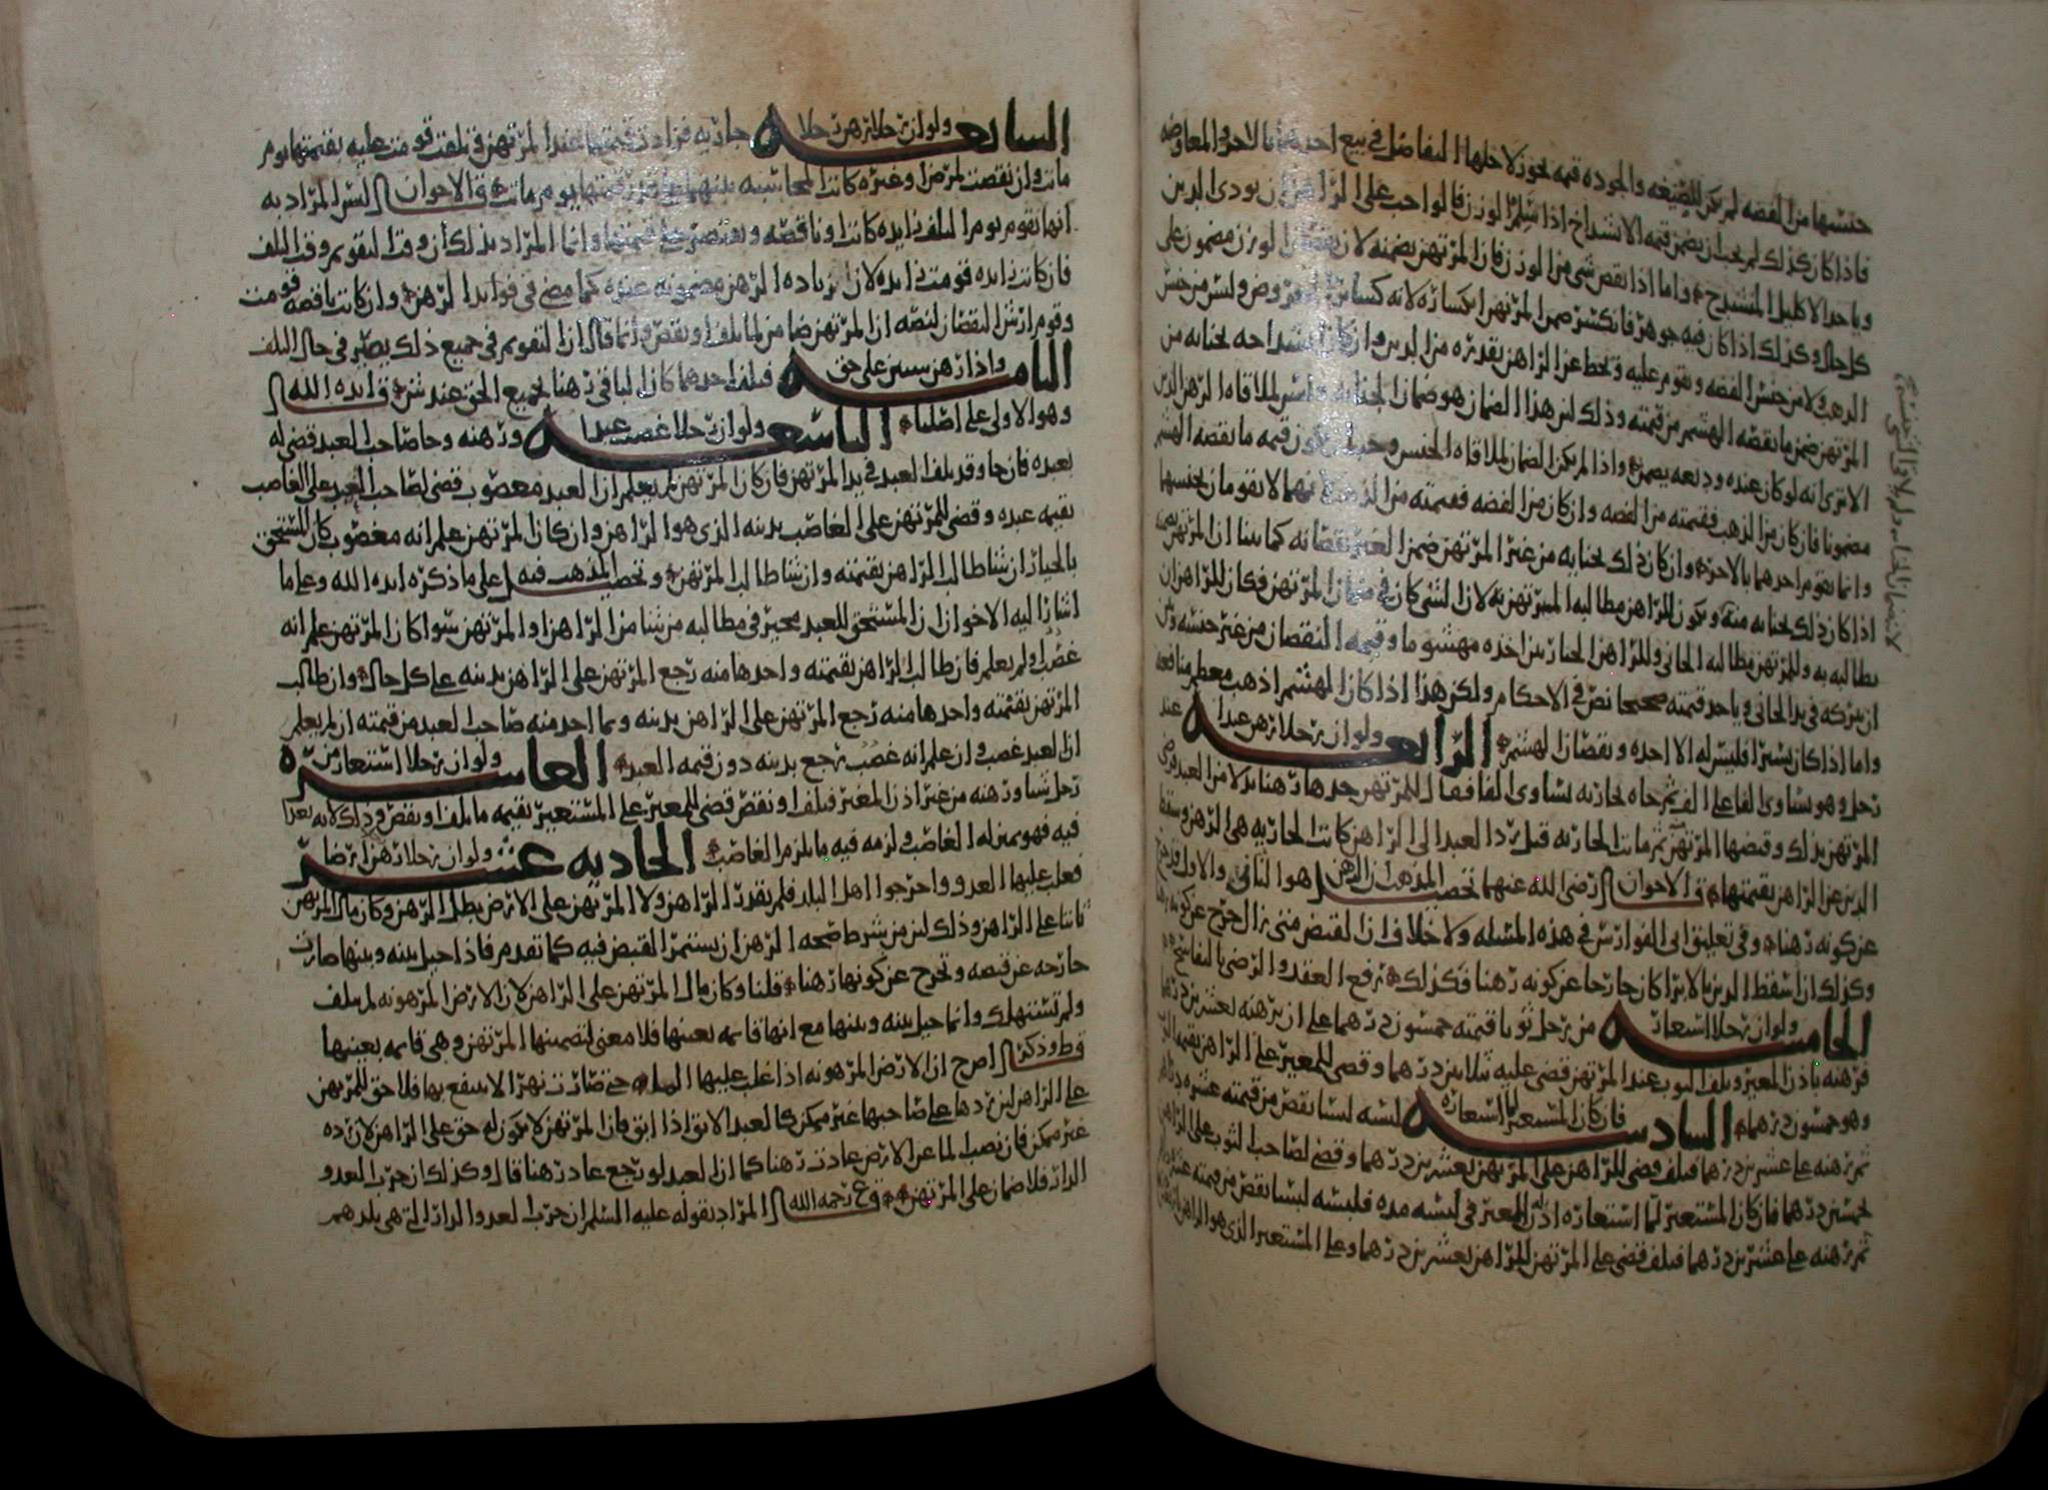 جنسها من الفضه لم يكن للصيغه والجوده قيمه يجوز لاجلها التفاضل في بيع احدهما بالاخر والمعاوضه
فاذا كان كذلك لم يجب ان يضمن قيمه الانشداخ اذا سلم الوزن قالوا جب على الراهن ان يودى الدين
وياخذ الاكليل المنشدخ واما اذا نقص شي من الوزن فان المرتهن يضمنه لان نقصان الوزن مضمون على
كل حال وكذلك اذا كان فيه جوهر فانكسر ضمن المرتهن انكساره لانه كسائر العروض وليس من جنس
الذهب ولا من جنس الفضه ويقوم عليه ويحط عن الراهن بقدره من الدين وان كان انشداخه بجنايه من
المرتهن ضمن ما نقصه الهشم من قيمته وذلك لان هذا الضمان هو ضمان الجنايه وليس لملاقاه الرهن الدين
الا ترى انه لو كان عنده وديعه يضمن واذا لم يكن الضمان لملاقاه الجنس وجب ان يكون قيمه ما نقصه الهشم
مضمونا فان كان من الذهب فقيمته من الفضه وان كان من الفضه فقيمته من الذهب لانهما لا يقومان بجنسهما
وانما يقوم احدهما بالاخر وان كان ذلك بجنايه من غير المرتهن ضمن الغير نقصانه كما بينا ان المرتهن يضمنه
اذا كان ذلك بجنايه منه ويكون للراهن مطالبه المرتهن به لان الشي كان في ضمان المرتهن فكان للراهن ان
يطالبه به وللمرتهن مطالبه الجاني وللراهن الخيار بين اخذه مهشوما وقيمه النقصان من غير جنسه وبين
ان يتركه في يد الجاني وياخذ قيمته صحيحا نص في الاحكام ولكن هذا اذا كان الهشم اذهب معظم منافعه
واما اذا كان يسيرا فليس له الا اخذه ونقصان الهشم الرابعه ولو ان رجلا رهن عبدا عند
رجل وهو يساوى الفا على الف ثم جاه بجاريه تساوى الفا فقال للمرتهن خذها رهنا بدلا من العبد فرضى
المرتهن بذلك وقبضها المرتهن ثم ماتت الجاريه قبل رد العبد الى الراهن كانت الجاريه هي الرهن وسقط
الدين عن الراهن بقيمتها قال الاخوان رضى الله عنهما تحصيل المذهب ان الرهن هو الثاني والاول قد خرج
عن كونه رهنا وفي تعليق ابى الفوارس في هذه المسله ولا خلاف ان القبض متى زال خرج عن كونه رهنا
وكذلك ان اسقط الدين بالابرا كان خارجا عن كونه رهنا فكذلك يرفع العقد والرضى بالتفاسخ
الخامسه ولو ان رجلا استعار من رجل ثوبا قيمته خمسون درهما على ان يرهنه بعشرين درهما
فرهنه باذن المعير وتلف الثوب عند المرتهن قضى عليه بثلاثين درهما وقضى للمعير على الراهن بقيمه الثوب
وهو خمسون درهما السادسه فان كان المستعير لما استعاره لبسه لبسا نقص من قيمته عشره دراهم
ثم رهنه على عشرين درهما فتلف قضى للراهن على المرتهن بعشرين درهما وقضى لصاحب الثوب على الراهن
بخمسين درهما فان كان المستعير لما استعاره اذن له المعير في لبسه مده فلبسه لبسا نقص من قيمته عشره
ثم رهنه على عشرين درهما فتلف قضى على المرتهن للراهن بعشرين درهما وعلى المستعير الذى هو الراهن
السابعه ولو ان رجلا رهن رجلا جاريه فزادت قيمتها عند المرتهن فتلفت قومت عليه بقيمتها يوم
ماتت وان نقصت لمرض او غيره كانت المحاسبه بينهما على قدر قيمتها يوم ماتت قال الاخوان ليس المراد به
انها تقوم يوم التلف زايده كانت او ناقصه ويقتصر على قيمتها وانما المراد بذلك ان وقت التقويم وقت التلف
فان كانت زايده قومت زايده لان زياده الرهن مضمونه عنده كما مضى في فوايد الرهن وان كانت ناقصه قومت
وقوم ارش النقصان لنصه ان المرتهن ضامن لما تلف او نقص وانما قال ان التقويم في جميع ذلك يصير في حال التلف
الثامنه واذا رهن شيين على حق فتلف احدهما كان الباقي رهنا بجميع الحق عند ش قال ايده الله
وهو الاولى على اصلنا التاسعه ولو ان رجلا غصب عبدا ورهنه وجا صاحب العبد قضى له
بعبده فان جا وقد تلف العبد في يد المرتهن فان كان المرتهن لم يعلم ان العبد مغصوب قضى لصاحب العبد على الغاصب
بقيمه عبده وقضى للمرتهن على الغاصب بدينه الذى هو الراهن وان كان المرتهن علم انه مغصوب كان المستحق
بالخيار ان شا طالب الراهن بقيمته وان شا طالب المرتهن وتحصيل المذهب فيه على ما ذكره ايده الله وعلى ما
اشار اليه الاخوان ان المستحق للعبد مخير في مطالبه من شا من الراهن او المرتهن سوا كان المرتهن علم انه
غصب او لم يعلم فان طالب الراهن بقيمته واخذها منه رجع المرتهن على الراهن بدينه على كل حال وان طالب
المرتهن بقيمته واخذها منه رجع المرتهن على الراهن بدينه وبما اخذ منه صاحب العبد من قيمته ان لم يعلم
ان العبد غصب وان علم انه غصب رجع بدينه دون قيمه العبد العاشره ولو ان رجلا استعار من
رجل شيا ورهنه من غير اذن المعير فتلف او نقص قضى للمعير على المستعير بقيمه ما تلف او نقص وذلك لانه تعدا
فيه فهو بمنزله الغاصب ولزمه فيه ما يلزم الغاصب الحاديه عشر ولو ان رجلا رهن ارضا
فغلب عليها العدو واخرجوا اهل البلد فلم يقدر الراهن ولا المرتهن على الارض بطل الرهن وكان مال المرتهن
ثابتا على الراهن وذلك لان من شرط صحه الرهن ان يستمر القبض فيه كما تقدم فاذا حيل بينه وبينها صارت
خارجه عن قبضه وتخرج عن كونها رهنا قلنا وكان مال المرتهن على الراهن لان الارض المرهونه لم تتلف
ولم تستهلك وانما حيل بينه وبينها مع انها قايمه بعينها فلا معنى لتضمينها المرتهن وهي قايمه بعينها
قال ط وذكر اصح ان الارض المرهونه اذا غلب عليها الما حتى صارت نهرا لا ينتفع بها فلا حق للمرتهن
على الراهن لان ردها على صاحبها غير ممكن كالعبد الابق اذا ابق فان المرتهن لا يكون له حق على الراهن لان رده
غير ممكن فان نضب الما عن الارض عادت رهنا كما ان العبد لو رجع عاد رهنا قال وكذلك ان خرب العدو
الدار فلا ضمان على المرتهن قال ع رحمه الله المراد بقوله عليه السلم ان خرب العدو الدار التي هي بلدهم